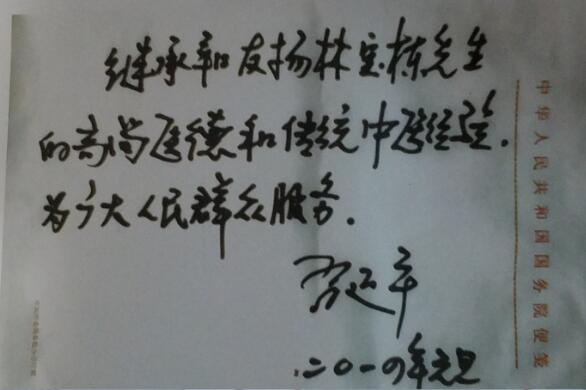 继承和发扬林宝栋先生
的高尚医德和传统中医经验.
为广大人民群众服务.
二〇一四年元旦
中华人民共和国国务院便笺